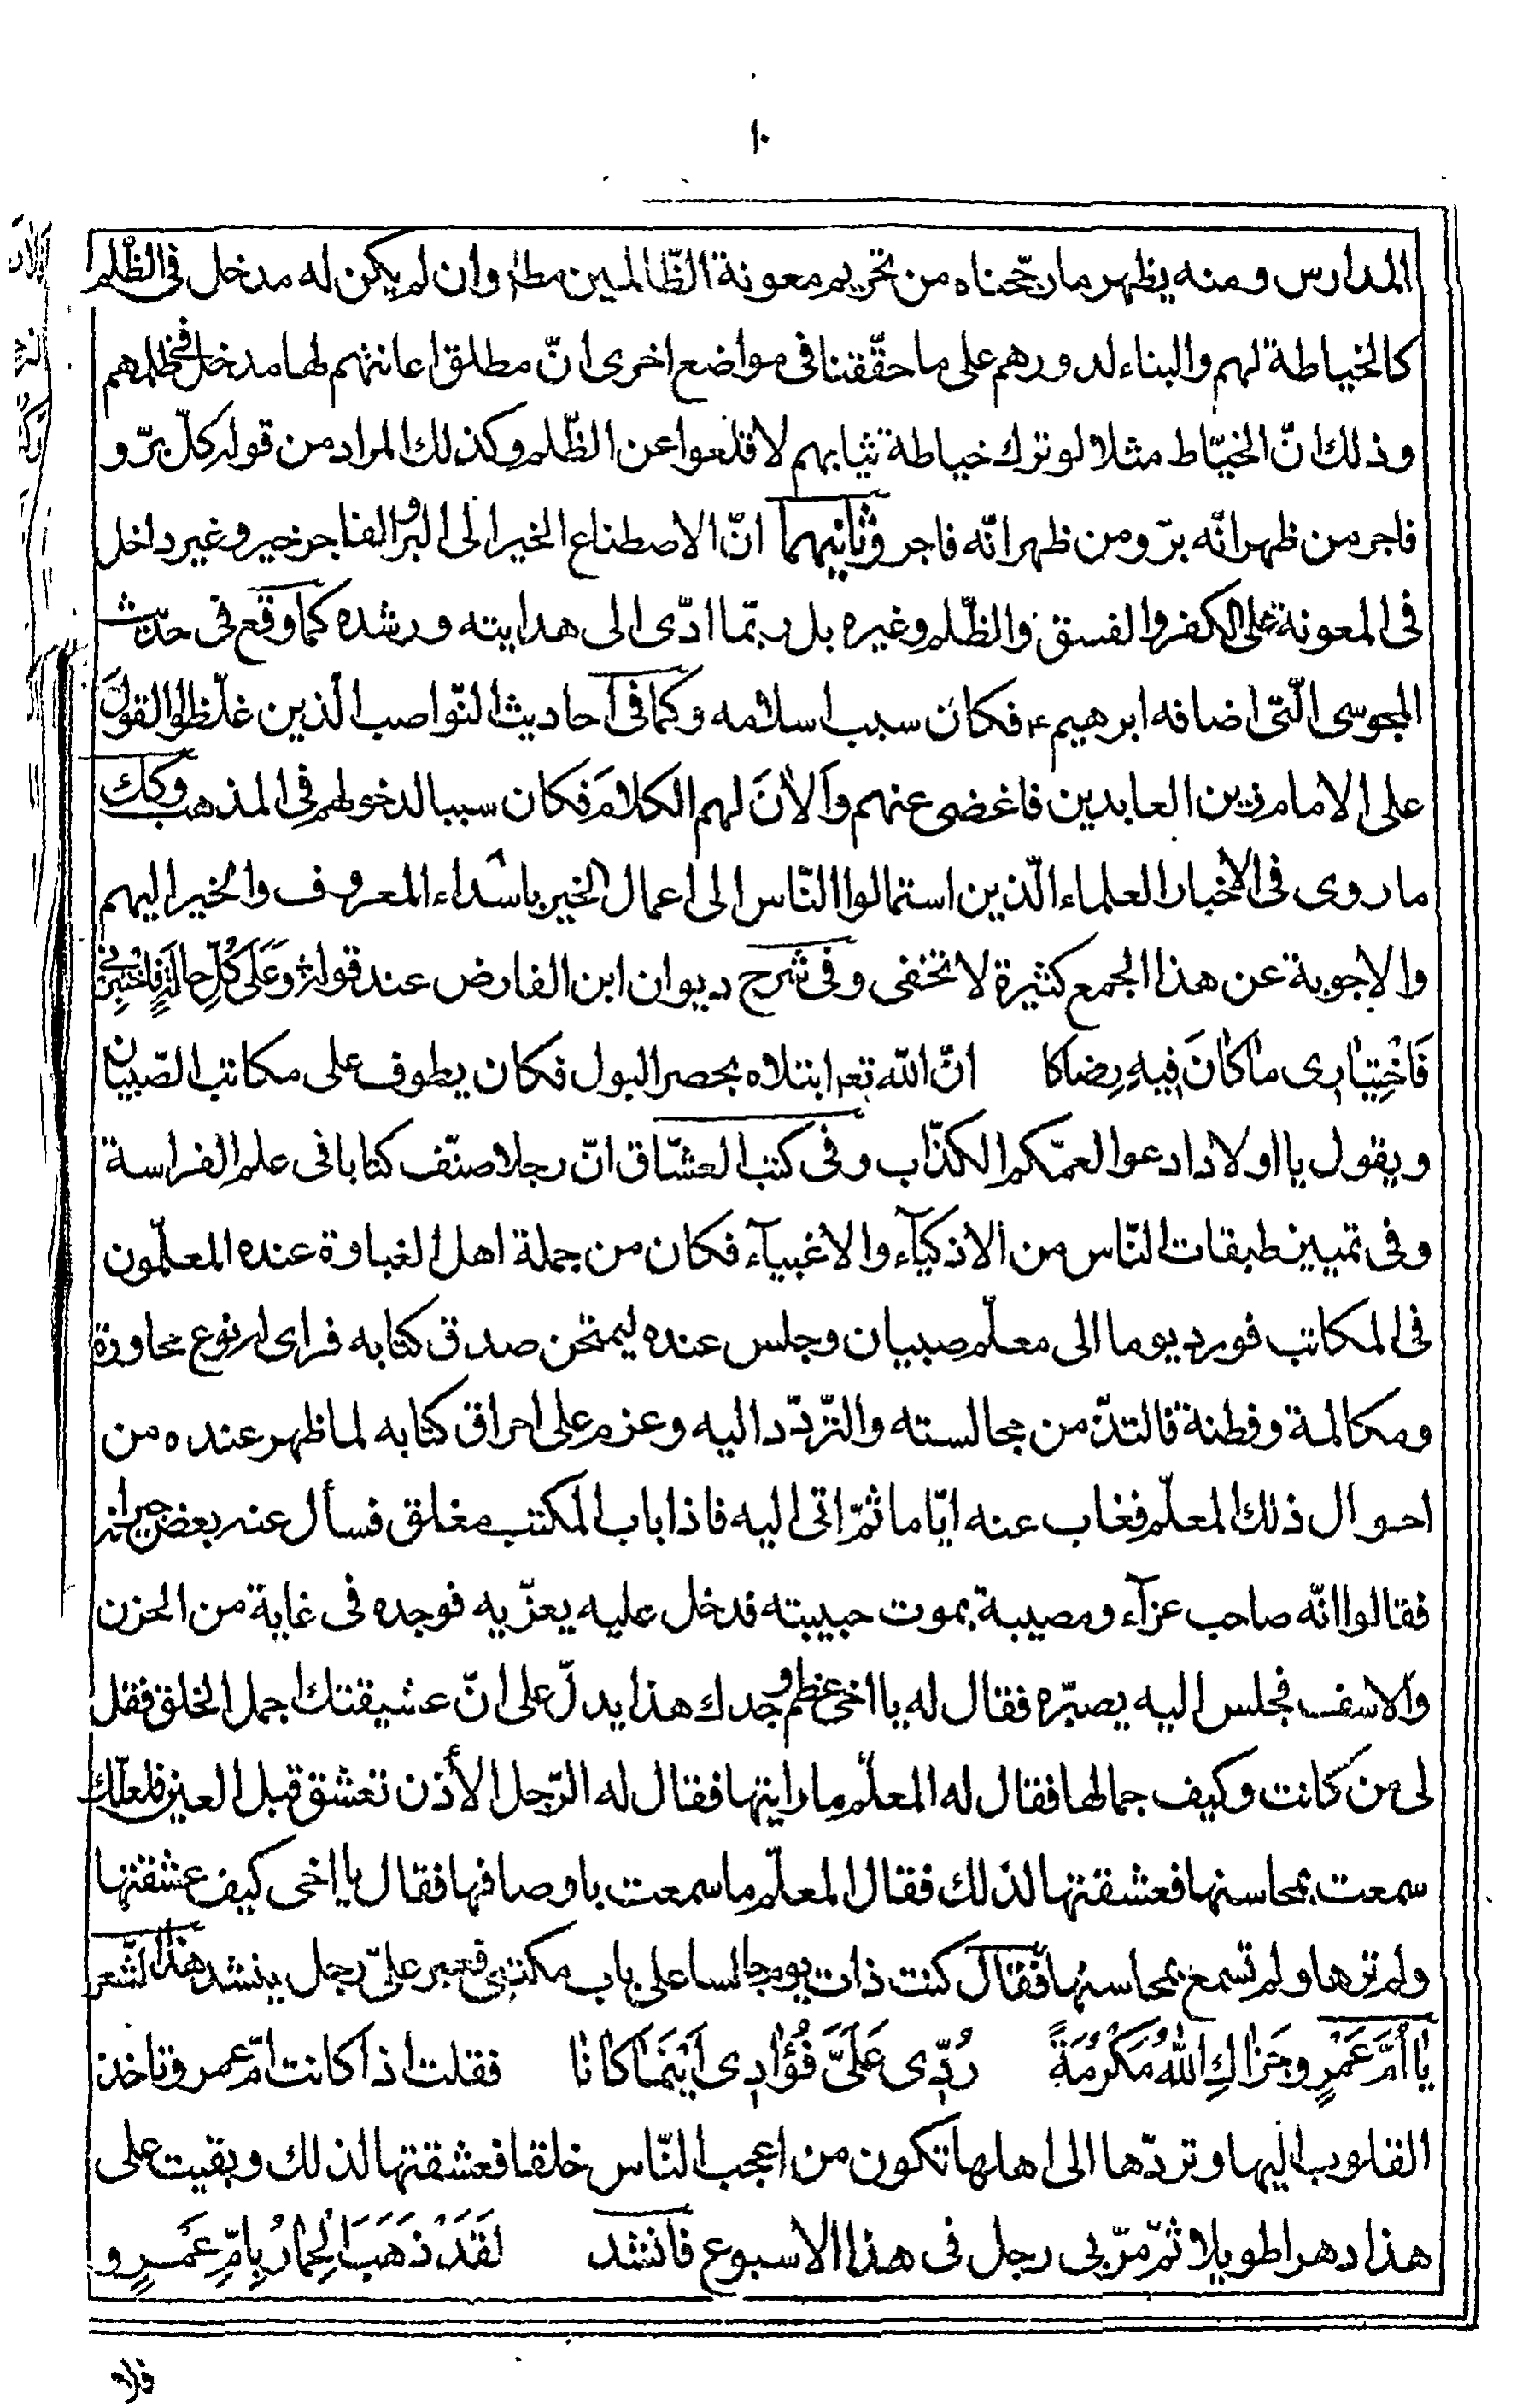 ١٠
المدارس ومنه يظهر ما رجّحناه من تحريم معونة الظّالمين مطلقا وان لم يكن له مدخل فى الظّلم
كالخياطة لهم والبناء لدورهم على ما حقّقنا فى مواضع اخرى انّ مطلق اعانتهم لها مدخل فى ظلمهم
وذلك انّ الخيّاط مثلا لو ترك خياطة ثيابهم لاقلعوا عن الظّلم وكذلك المراد من قوله كلّ برّ و
فاجر من ظهر انّه برّ ومن ظهر انّه فاجر وثانيهما انّ الاصطناع الخير الى البرّ والفاجر خير وغير داخل
فى المعونة على الكفر والفسق والظّلم وغيره بل ربّما ادّى الى هدايته ورشده كما وقع فى حديث
المجوسى الّتى اضافه ابرهيم ع فكان سبب اسلامه وكما فى احاديث النّواصب الّذين غلّظوا القول
على الامام زين العابدين فاغضى عنهم وَاَلانَ لهم الكلامَ فكان سببا لدخولهم فى المذهب وكك
ما روى فى الاخبار العلماء الّذين استمالوا النّاس الى اعمال الخير باسداء المعروف والخير اليهم
والاجوبة عن هذا الجمع كثيرة لا تخفى وفى شرح ديوان ابن الفارض عند قوله وَعَلى كُلِّ حالَةٍ فَاخْتَبِرْنى
فَاخْتِيٰارى ماكانَ فِيهِ رِضاكا انّ اللّه تع ابتلاه بحصر البول فكان يطوف على مكاتب الصّبيان
ويقول يا اولاد ادعوا لعمّكم الكذّاب وفى كتب العشّاق انّ رجلا صنّف كتابا فى علم الفراسة
وفى تمييز طبقات النّاس من الاذكيآء والاغبيآء فكان من جملة اهل الغباوة عنده المعلّمون
فى المكاتب فورد يوما الى معلّم صبيان وجلس عنده ليمتحن صدق كتابه فراى له نوع محاورة
ومكالمة وفطنة فالتذّ من مجالسته والتّردّد اليه وعزم على احراق كتابه لما ظهر عنده من
احوال ذلك المعلّم فغاب عنه ايّاما ثمّ اتى اليه فاذا باب المكتب مغلق فسأل عنه بعض جيرانه
فقالوا انّه صاحب عزآء ومصيبة بموت حبيبته فدخل عليه يعزّيه فوجده فى غاية من الحزن
والاسف فجلس اليه يصبّره فقال له يا اخى عظم وجدك هذا يدلّ على انّ عشيقتك اجمل الخلق فقل
لى من كانت وكيف جمالها فقال له المعلّم ما رايتها فقال له الرّجل الأذن تعشق قبل العين فلعلّك
سمعت بمحاسنها فعشقتها لذلك فقال المعلّم ما سمعت باوصافها فقال يا اخى كيف عشقتها
ولم ترها ولم تسمع بمحاسنها فقال كنت ذات يوم جالسا على باب مكتبى فعبر علىّ رجل ينشد هذا الشّعر
يٰا اُمَّ عَمْرٍو جَزاكِ اللّٰهُ مَكْرُمَةً رُدّى عَلَىَّ فُؤادى اَيْنَمٰا كٰانٰا فقلت اذا كانت امّ عمرو تاخذ
القلوب اليها وتردّها الى اهلها تكون من اعجب النّاس خلقا فعشقتها لذلك وبقيت على
هذا دهرا طويلا ثمّ مرّ بى رجل فى هذا الاسبوع فانشد لَقَدْ ذَهَبَ الْحِمٰارُ بِاُمِّ عَمْرٍو